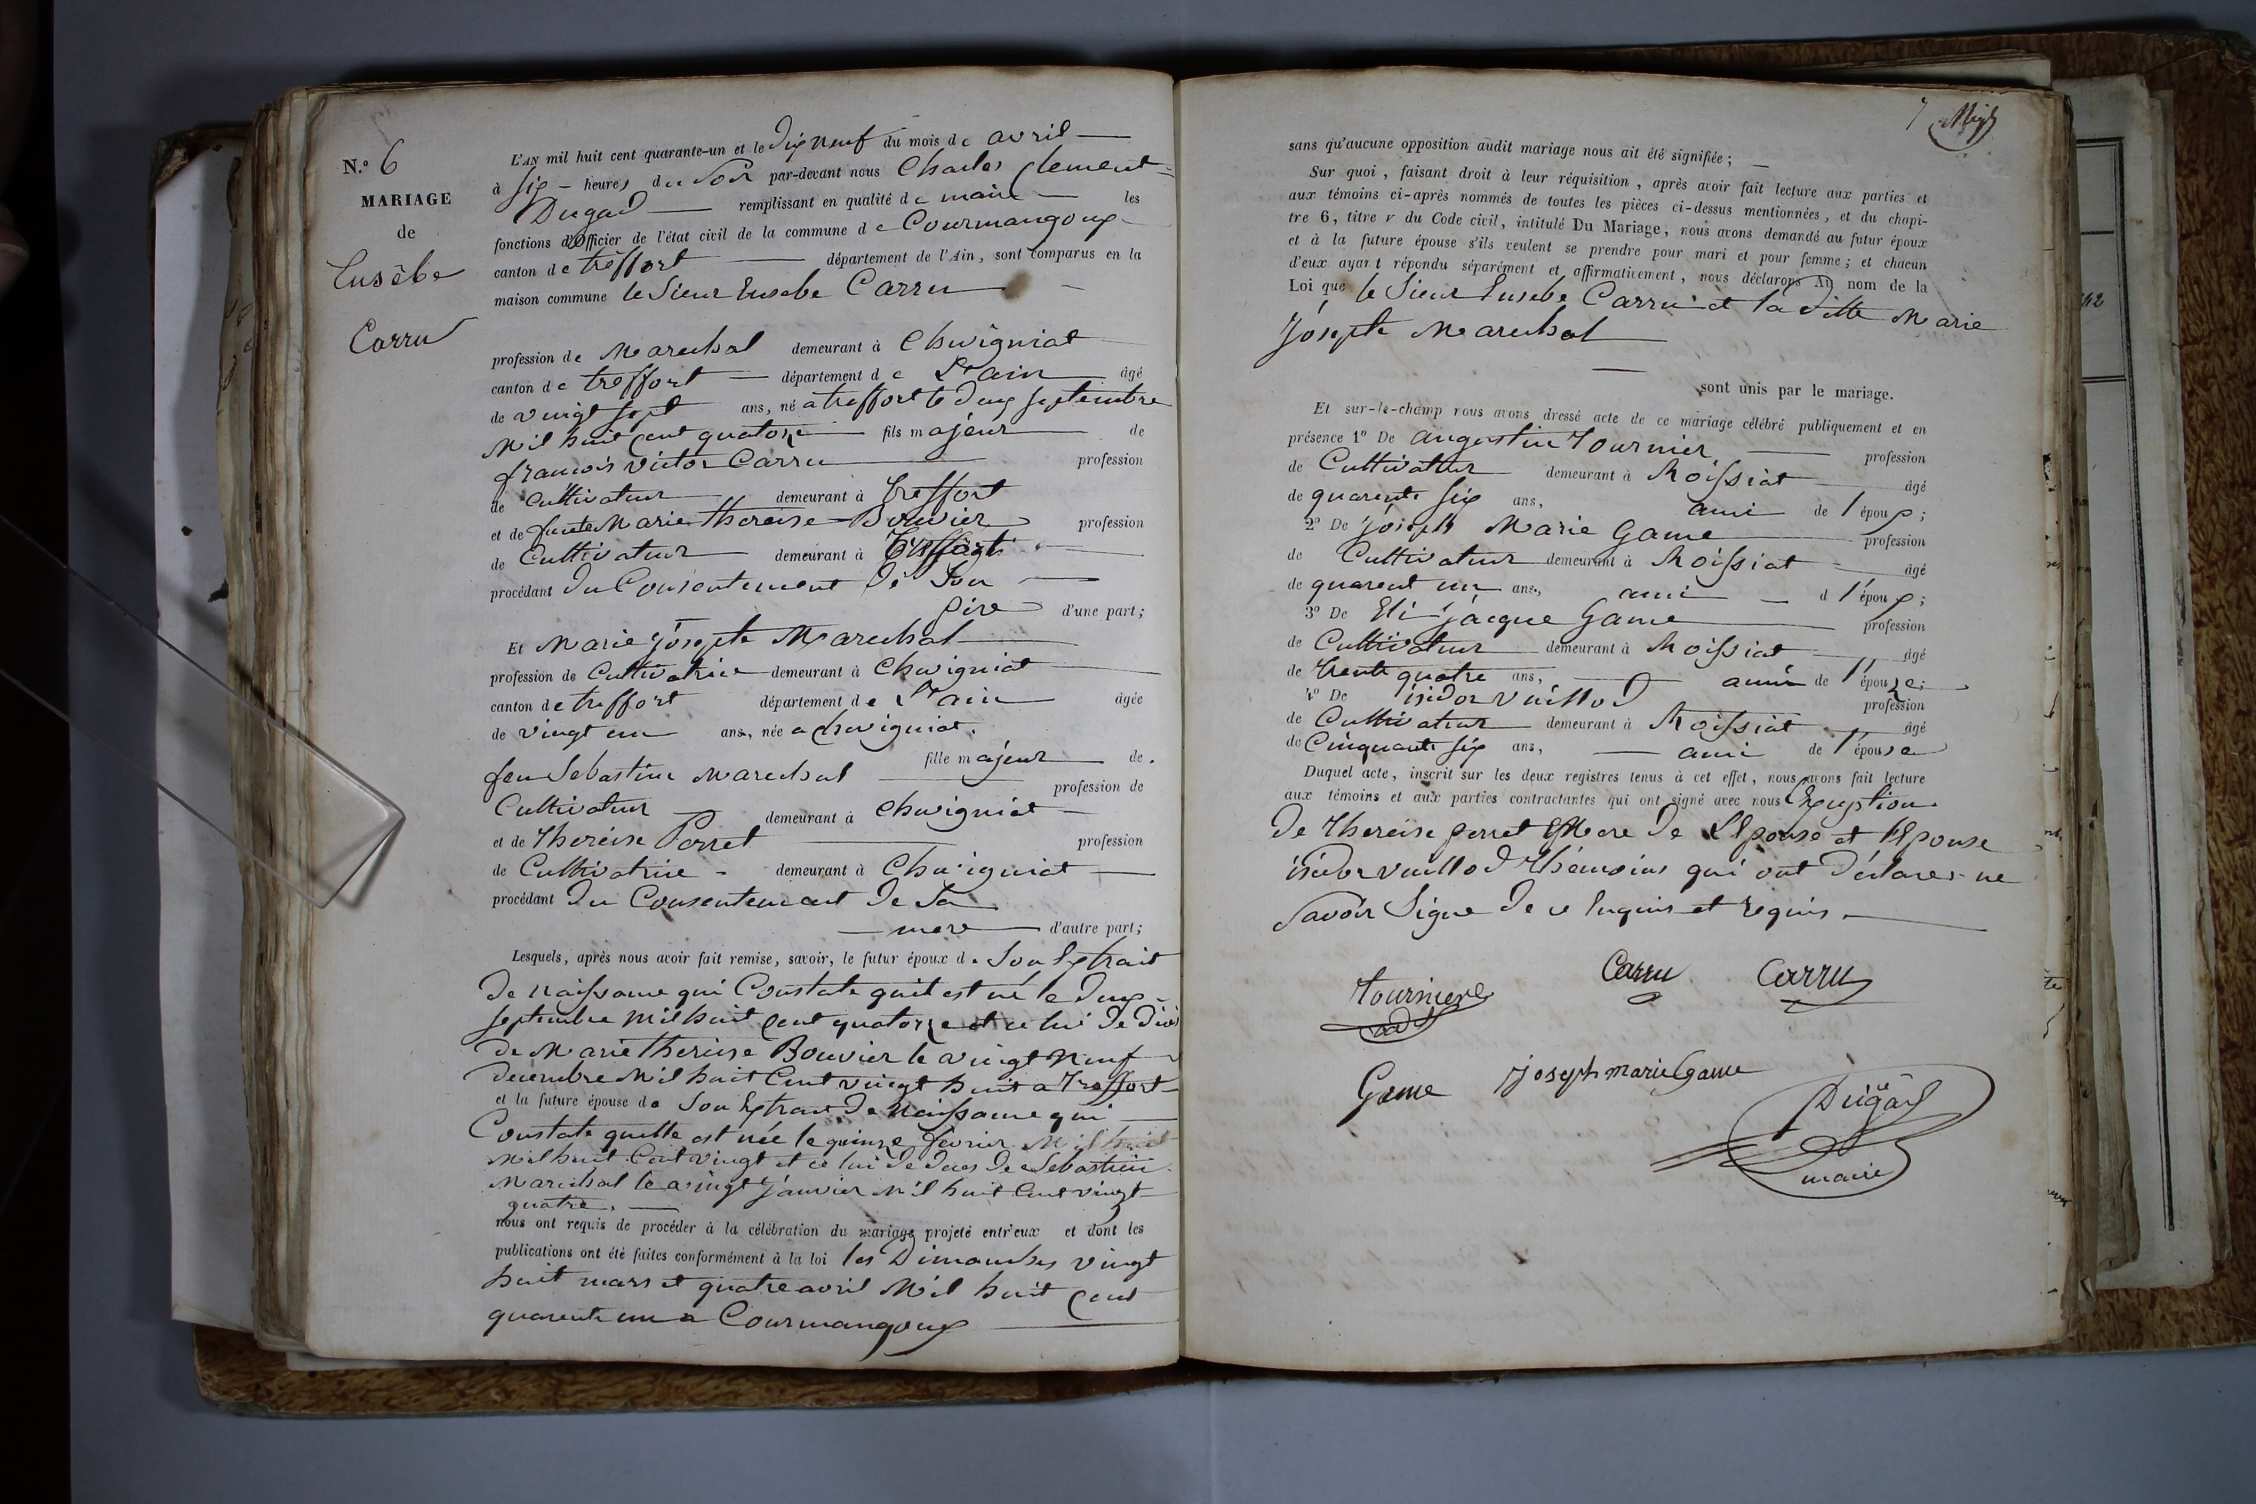 N.º 6
MARIAGE
de
Eusêbe
Carru
L'AN mil huit cent quarante-un et le dix neuf du mois de avril
à six heures du soir par-devant nous Charles Clement
Dugad remplissant en qualité de maire les
fonctions d'Officier de l'état civil de la commune de Courmangoux
canton de treffort département de l'Ain, sont comparus en la
maison commune le Sieur Eusebe Carru
profession de Marechal demeurant à Chevigniat
canton de treffort département de L'ain âgé
de vingt sept ans, né a treffort le deux septembre
Mil huit Cent quatorze fils majeur de
françois victor Carru profession
de Cultivateur demeurant à Treffort
et de feute Marie thereise Bouvier profession
de Cultivateur demeurant à Treffort
procédant du Consentement de Son
père d'une part;
Et Marie Josepte Marechal
profession de Cultivatrice demeurant à Chevigniat
canton de treffort département de L'ain âgée
de vingt un ans, née a Chevigniat.
fille majeur de
feu Sebastien Marechal profession de
Cultivateur demeurant à Chevigniat
et de Thereise Perret profession
de Cultivatrice demeurant à Chevigniat
procédant du Consentement de Sa
mere d'autre part;
Lesquels, après nous avoir fait remise, savoir, le futur époux de Son Extrait
de Naissance qui Constate quil est né le deux
septembre Mil huit Cent quatorze et ce lui de
de Marie thereise Bouvier le vingt Neuf
decembre Mil huit Cent vingt huit a Treffort
et la future épouse de Son Extrait de Naissance qui
Constate quelle est née le quinze fevrier Mil huit
Mil huit Cent vingt et ce lui de deces de Sebastien
Marechal le vingt Janvier Mil huit Cent vingt
quatre.
nous ont requis de procéder à la célébration du mariage projeté entr'eux et dont les
publications ont été faites conformément à la loi les Dimanches vingt
huit mars et quatre avril Mil huit Cent
quarente un a Courmangoux
7
sans qu'aucune opposition audit mariage nous ait été signifiée;
Sur quoi, faisant droit à leur réquisition, après avoir fait lecture aux parties et
aux témoins ci-après nommés de toutes les pièces ci-dessus mentionnées, et du chapi-
tre 6, titre v du Code civil, intitulé Du Mariage, nous avons demandé au futur époux
et à la future épouse s'ils veulent se prendre pour mari et pour femme; et chacun
d'eux ayant répondu séparément et affirmativement, nous déclarons au nom de la
Loi que le Sieur Eusebe Carru et la ditte Marie
Josepte Marechal
sont unis par le mariage.
Et sur-le-champ nous avons dressé acte de ce mariage célébré publiquement et en
présence 1º De augustin Tournier profession
de Cultivateur demeurant à Roissiat âgé
de quarente six ans, ami de l'époux;
2º De Joseph Marie Game profession
de Cultivateur demeurant à Roissiat âgé
de quarent un ans, ami d l'époux;
3º De Eli jacque Game profession
de Cultivateur demeurant à Roissiat âgé
de trente quatre ans, ami de l'épouze;
4º De isidor vuillod profession
de Cultivateur demeurant à Roissiat âgé
de Cinquante six ans, ami de l'épouse
Duquel acte, inscrit sur les deux registres tenus à cet effet, nous avons fait lecture
aux témoins et aux parties contractantes qui ont signé avec nous Exseption
de Thereise perret Mere de L'Epouse et lEpouse
isidor vuillod Themoins qui ont déclarer ne
Savoir Signe de ce Enquis et requis.
Tournier
Carru Carru
Game Joseph marie Game
Dugad
maire